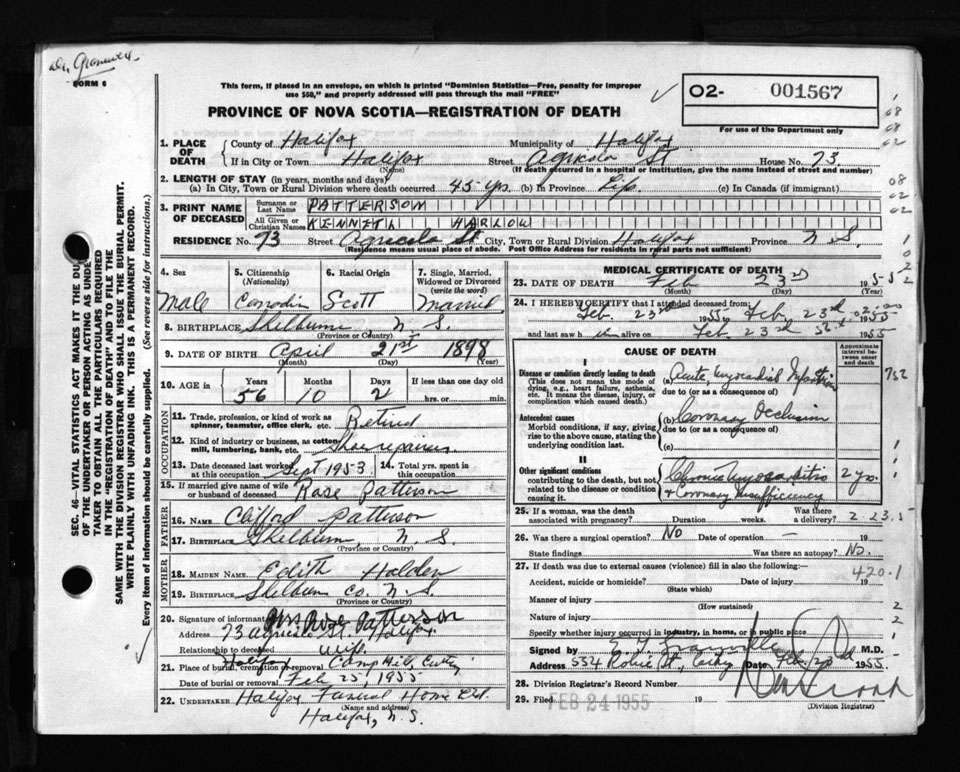 Dr. Granville
FORM 6
This form, if placed in an envelope, on which is printed "Dominion Statistics—Free, penalty for improper
use $50," and properly addressed will pass through the mail "FREE"
PROVINCE OF NOVA SCOTIA—REGISTRATION OF DEATH
O2- 001567
For use of the Department only
1. PLACE OF DEATH County of Halifax Municipality of Halifax
If in City or Town Halifax Street Agricola St House No. 73
(Name) (If death occurred in a hospital or institution, give the name instead of street and number)
2. LENGTH OF STAY (in years, months and days)
(a) In City, Town or Rural Division where death occurred 45 yrs. (b) In Province Life (c) In Canada (if immigrant)
3. PRINT NAME OF DECEASED Surname or Last Name PATTERSON
All Given or Christian Names KENNETH HARLOW
RESIDENCE No. 73 Street Agricola St City, Town or Rural Division Halifax Province N.S.
(Residence means usual place of abode. Post Office Address for residents in rural parts not sufficient)
4. Sex Male
5. Citizenship (Nationality) Canadian
6. Racial Origin Scott
7. Single, Married, Widowed or Divorced (write the word) Married
8. BIRTHPLACE Shelburne N.S.
(Province or Country)
9. DATE OF BIRTH April 21st 1898
(Month) (Day) (Year)
10. AGE in Years 56 Months 10 Days 2 If less than one day old
hrs. or min.
11. Trade, profession, or kind of work as spinner, teamster, office clerk, etc. Retired
12. Kind of industry or business, as cotton mill, lumbering, bank, etc. Shoe repairing
13. Date deceased last worked at this occupation Sept 1953 14. Total yrs. spent in this occupation
15. If married give name of wife or husband of deceased Rose Patterson
FATHER
16. NAME Clifford Patterson
17. BIRTHPLACE Shelburn, N.S.
(Province or Country)
MOTHER
18. MAIDEN NAME Edith Holden
19. BIRTHPLACE Shelburn Co. N.S.
(Province or Country)
20. Signature of informant Mrs Rose Patterson
Address 73 Agricola St. Halifax.
Relationship to deceased wife
21. Place of burial, cremation or removal Halifax Camp Hill, Cem'try
Date of burial or removal Feb 25, 1955
22. UNDERTAKER Halifax Funeral Home Ltd.
(Name and address)
Halifax, N.S.
MEDICAL CERTIFICATE OF DEATH
23. DATE OF DEATH Feb 23rd 1955
(Month) (Day) (Year)
24. I HEREBY CERTIFY that I attended deceased from:
Feb. 23rd 1955 to Feb. 23rd 1955
and last saw him alive on Feb. 23rd 1955
CAUSE OF DEATH
Approximate interval between onset and death
I
Disease or condition directly leading to death (a) Acute Myocardial Infarction
(This does not mean the mode of dying, e.g., heart failure, asthenia, etc. It means the disease, injury, or complication which caused death.)
due to (or as a consequence of)
Antecedent causes (b) Coronary Occlusion
Morbid conditions, if any, giving rise to the above cause, stating the underlying condition last.
due to (or as a consequence of)
(c)
II
Other significant conditions contributing to the death, but not related to the disease or condition causing it.
Chronic Myocarditis 2 yrs.
& Coronary Insufficiency
25. If a woman, was the death associated with pregnancy? Duration weeks. Was there a delivery?
26. Was there a surgical operation? No Date of operation — 19
State findings Was there an autopsy? No.
27. If death was due to external causes (violence) fill in also the following:—
420.1
Accident, suicide or homicide? Date of injury 19
(State which)
Manner of injury
(How sustained)
Nature of injury
Specify whether injury occurred in industry, in home, or in public place
Signed by Granville M.D.
Address 534 Robie St., City Date Feb. 1955
28. Division Registrar's Record Number
29. Filed FEB 24 1955 19
(Division Registrar)
SEC. 46—VITAL STATISTICS ACT MAKES IT THE DUTY
OF THE UNDERTAKER OR PERSON ACTING AS UNDER-
TAKER TO OBTAIN ALL THE PARTICULARS REQUIRED
IN THE "REGISTRATION OF DEATH" AND TO FILE THE
SAME WITH THE DIVISION REGISTRAR WHO SHALL ISSUE THE BURIAL PERMIT.
WRITE PLAINLY WITH UNFADING INK. THIS IS A PERMANENT RECORD.
Every item of information should be carefully supplied. (See reverse side for instructions.)